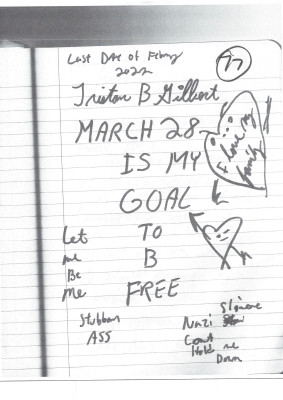 Last DAY of Febury
2022
77
Triston B Gilbert
MARCH 28
IS MY
GOAL
TO
B
FREE
I love my
family
Let
me
Be
me
Stubborn
ASS
Nazi
Cant
Hold me
Down